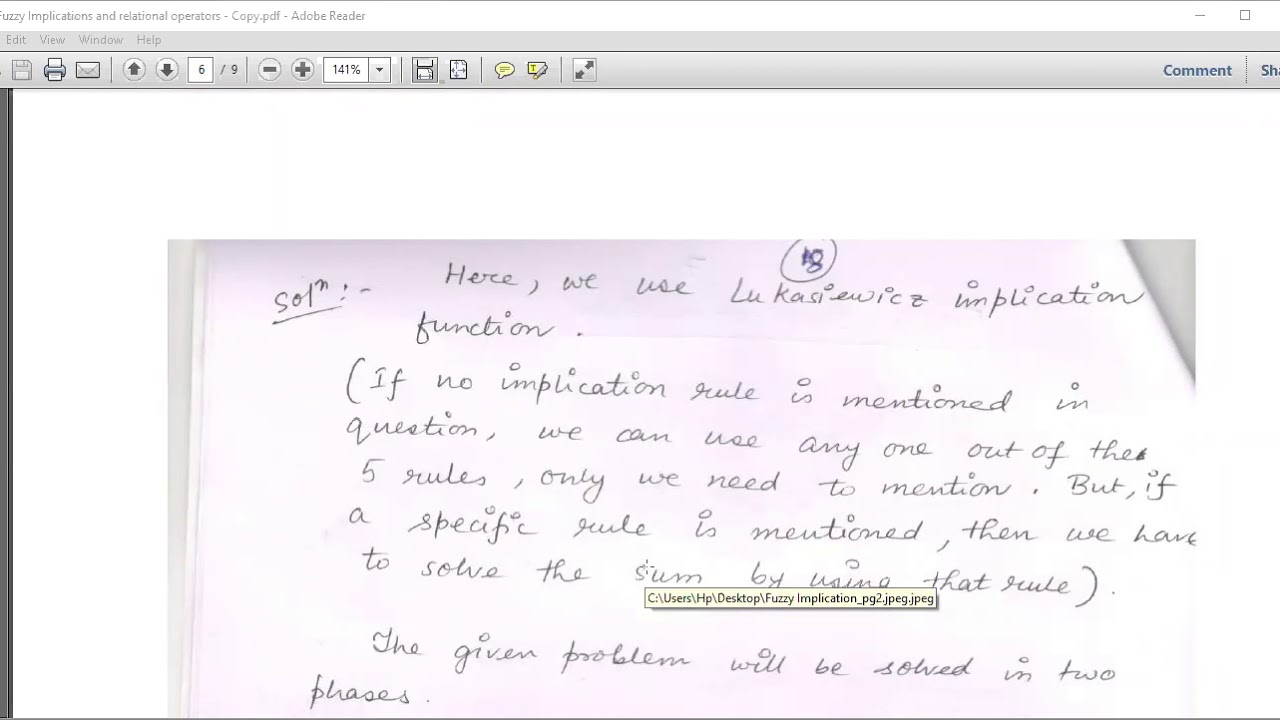 Fuzzy Implications and relational operators - Copy.pdf - Adobe Reader
Edit View Window Help
6 / 9 141% Comment Sha
18
Solⁿ :- Here, we use Lukasiewicz implication
function.
(If no implication rule is mentioned in
question, we can use any one out of the
5 rules, only we need to mention. But, if
a specific rule is mentioned, then we have
to solve the sum by using that rule).
C:\Users\Hp\Desktop\Fuzzy Implication_pg2.jpeg.jpeg
The given problem will be solved in two
phases.